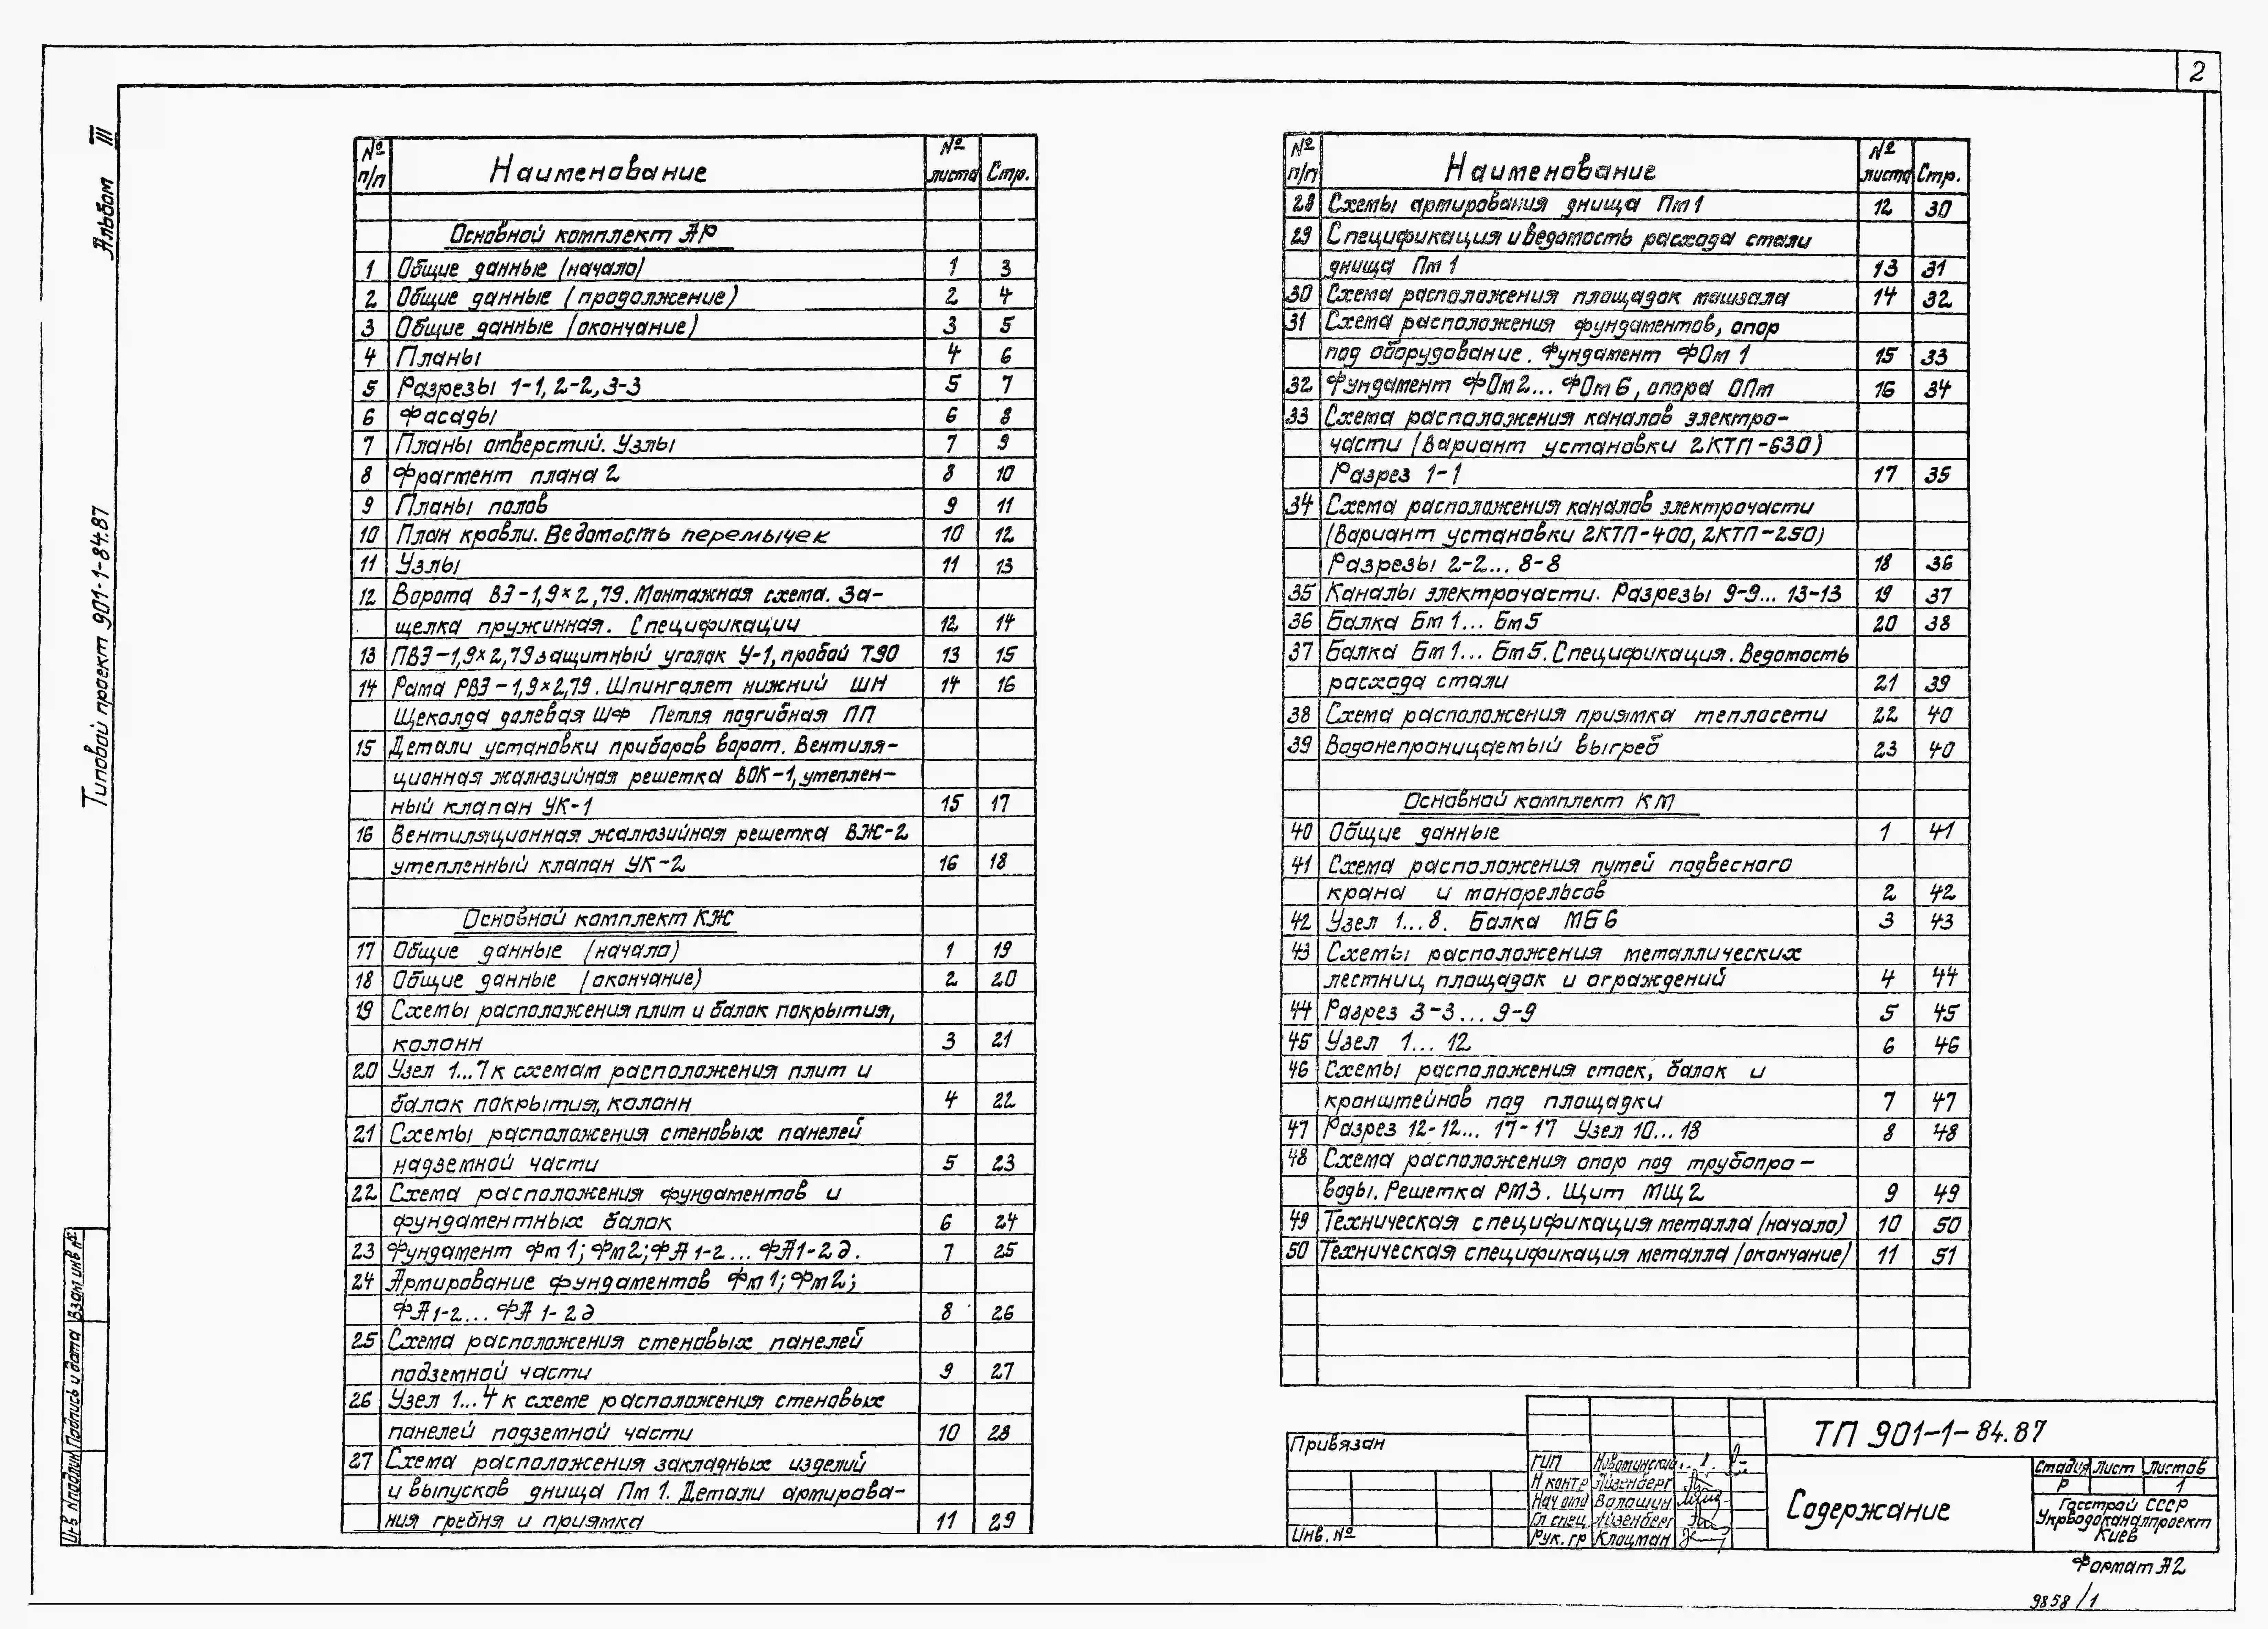 2
Альбом III
Типовой проект 901-1-84.87
№ п/п Наименование № листа Стр.
Основной комплект АР
1 Общие данные (начало) 1 3
2 Общие данные (продолжение) 2 4
3 Общие данные (окончание) 3 5
4 Планы 4 6
5 Разрезы 1-1, 2-2, 3-3 5 7
6 Фасады 6 8
7 Планы отверстий. Узлы 7 9
8 Фрагмент плана 2 8 10
9 Планы полов 9 11
10 План кровли. Ведомость перемычек 10 12
11 Узлы 11 13
12 Ворота ВЭ-1,9×2,79. Монтажная схема. За-
щелка пружинная. Спецификации 12 14
13 ПВЭ-1,9×2,79 защитный уголок У-1, пробой Т90 13 15
14 Рама РВЭ-1,9×2,79. Шпингалет нижний ШН 14 16
Щеколда долевая ШФ Петля подгибная ПП
15 Детали установки приборов ворот. Вентиля-
ционная жалюзийная решетка ВОК-1, утеплен-
ный клапан УК-1 15 17
16 Вентиляционная жалюзийная решетка ВЖ-2
утепленный клапан УК-2 16 18
Основной комплект КЖ
17 Общие данные (начало) 1 19
18 Общие данные (окончание) 2 20
19 Схемы расположения плит и балок покрытия,
колонн 3 21
20 Узел 1...7 к схемам расположения плит и
балок покрытия, колонн 4 22
21 Схемы расположения стеновых панелей
надземной части 5 23
22 Схема расположения фундаментов и
фундаментных балок 6 24
23 Фундамент Фм1; Фм2; ФА1-2... ФА1-2д. 7 25
24 Армирование фундаментов Фм1; Фм2;
ФА1-2... ФА1-2д 8 26
25 Схема расположения стеновых панелей
подземной части 9 27
26 Узел 1...4 к схеме расположения стеновых
панелей подземной части 10 28
27 Схема расположения закладных изделий
и выпусков днища Пм1. Детали армирова-
ния гребня и приямка 11 29
№ п/п Наименование № листа Стр.
28 Схемы армирования днища Пм1 12 30
29 Спецификация и ведомость расхода стали
днища Пм1 13 31
30 Схема расположения площадок машзала 14 32
31 Схема расположения фундаментов, опор
под оборудование. Фундамент ФОм1 15 33
32 Фундамент ФОм2... ФОм6, опора ОПм 16 34
33 Схема расположения каналов электро-
части (Вариант установки 2КТП-630)
Разрез 1-1 17 35
34 Схема расположения каналов электрочасти
(Вариант установки 2КТП-400, 2КТП-250)
Разрезы 2-2... 8-8 18 36
35 Каналы электрочасти. Разрезы 9-9... 13-13 19 37
36 Балка Бм1... Бм5 20 38
37 Балка Бм1... Бм5. Спецификация. Ведомость
расхода стали 21 39
38 Схема расположения приямка теплосети 22 40
39 Водонепроницаемый выгреб 23 40
Основной комплект КМ
40 Общие данные 1 41
41 Схема расположения путей подвесного
крана и монорельсов 2 42
42 Узел 1...8. Балка МБ6 3 43
43 Схемы расположения металлических
лестниц, площадок и ограждений 4 44
44 Разрез 3-3... 9-9 5 45
45 Узел 1... 12 6 46
46 Схемы расположения стоек, балок и
кронштейнов под площадки 7 47
47 Разрез 12-12... 17-17 Узел 10...18 8 48
48 Схема расположения опор под трубопро-
воды. Решетка РМ3. Щит МЩ2 9 49
49 Техническая спецификация металла (начало) 10 50
50 Техническая спецификация металла (окончание) 11 51
Инв № подлин Подпись и дата Взам инв №
Привязан
Инв. №
ГИП
Н контр Айзенберг
Нач отд Волошин
Гл спец Айзенберг
Рук. гр Клоцман
ТП 901-1-84.87
Содержание
Стадия Лист Листов
Р 1
Госстрой СССР
Укрводоканалпроект
Киев
Формат А2
9858/1